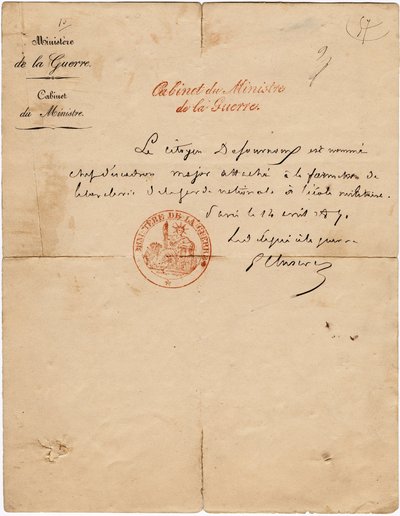 10
57
Ministère
de la Guerre.
Cabinet
du Ministre.
Cabinet du Ministre
de la Guerre.
Le citoyen est nommé
chef d'escadron major attaché à la formation de
la cavalerie de la garde nationale à l'école militaire.
Paris le 14 avril
Le à la guerre
MINISTÈRE DE LA GUERRE